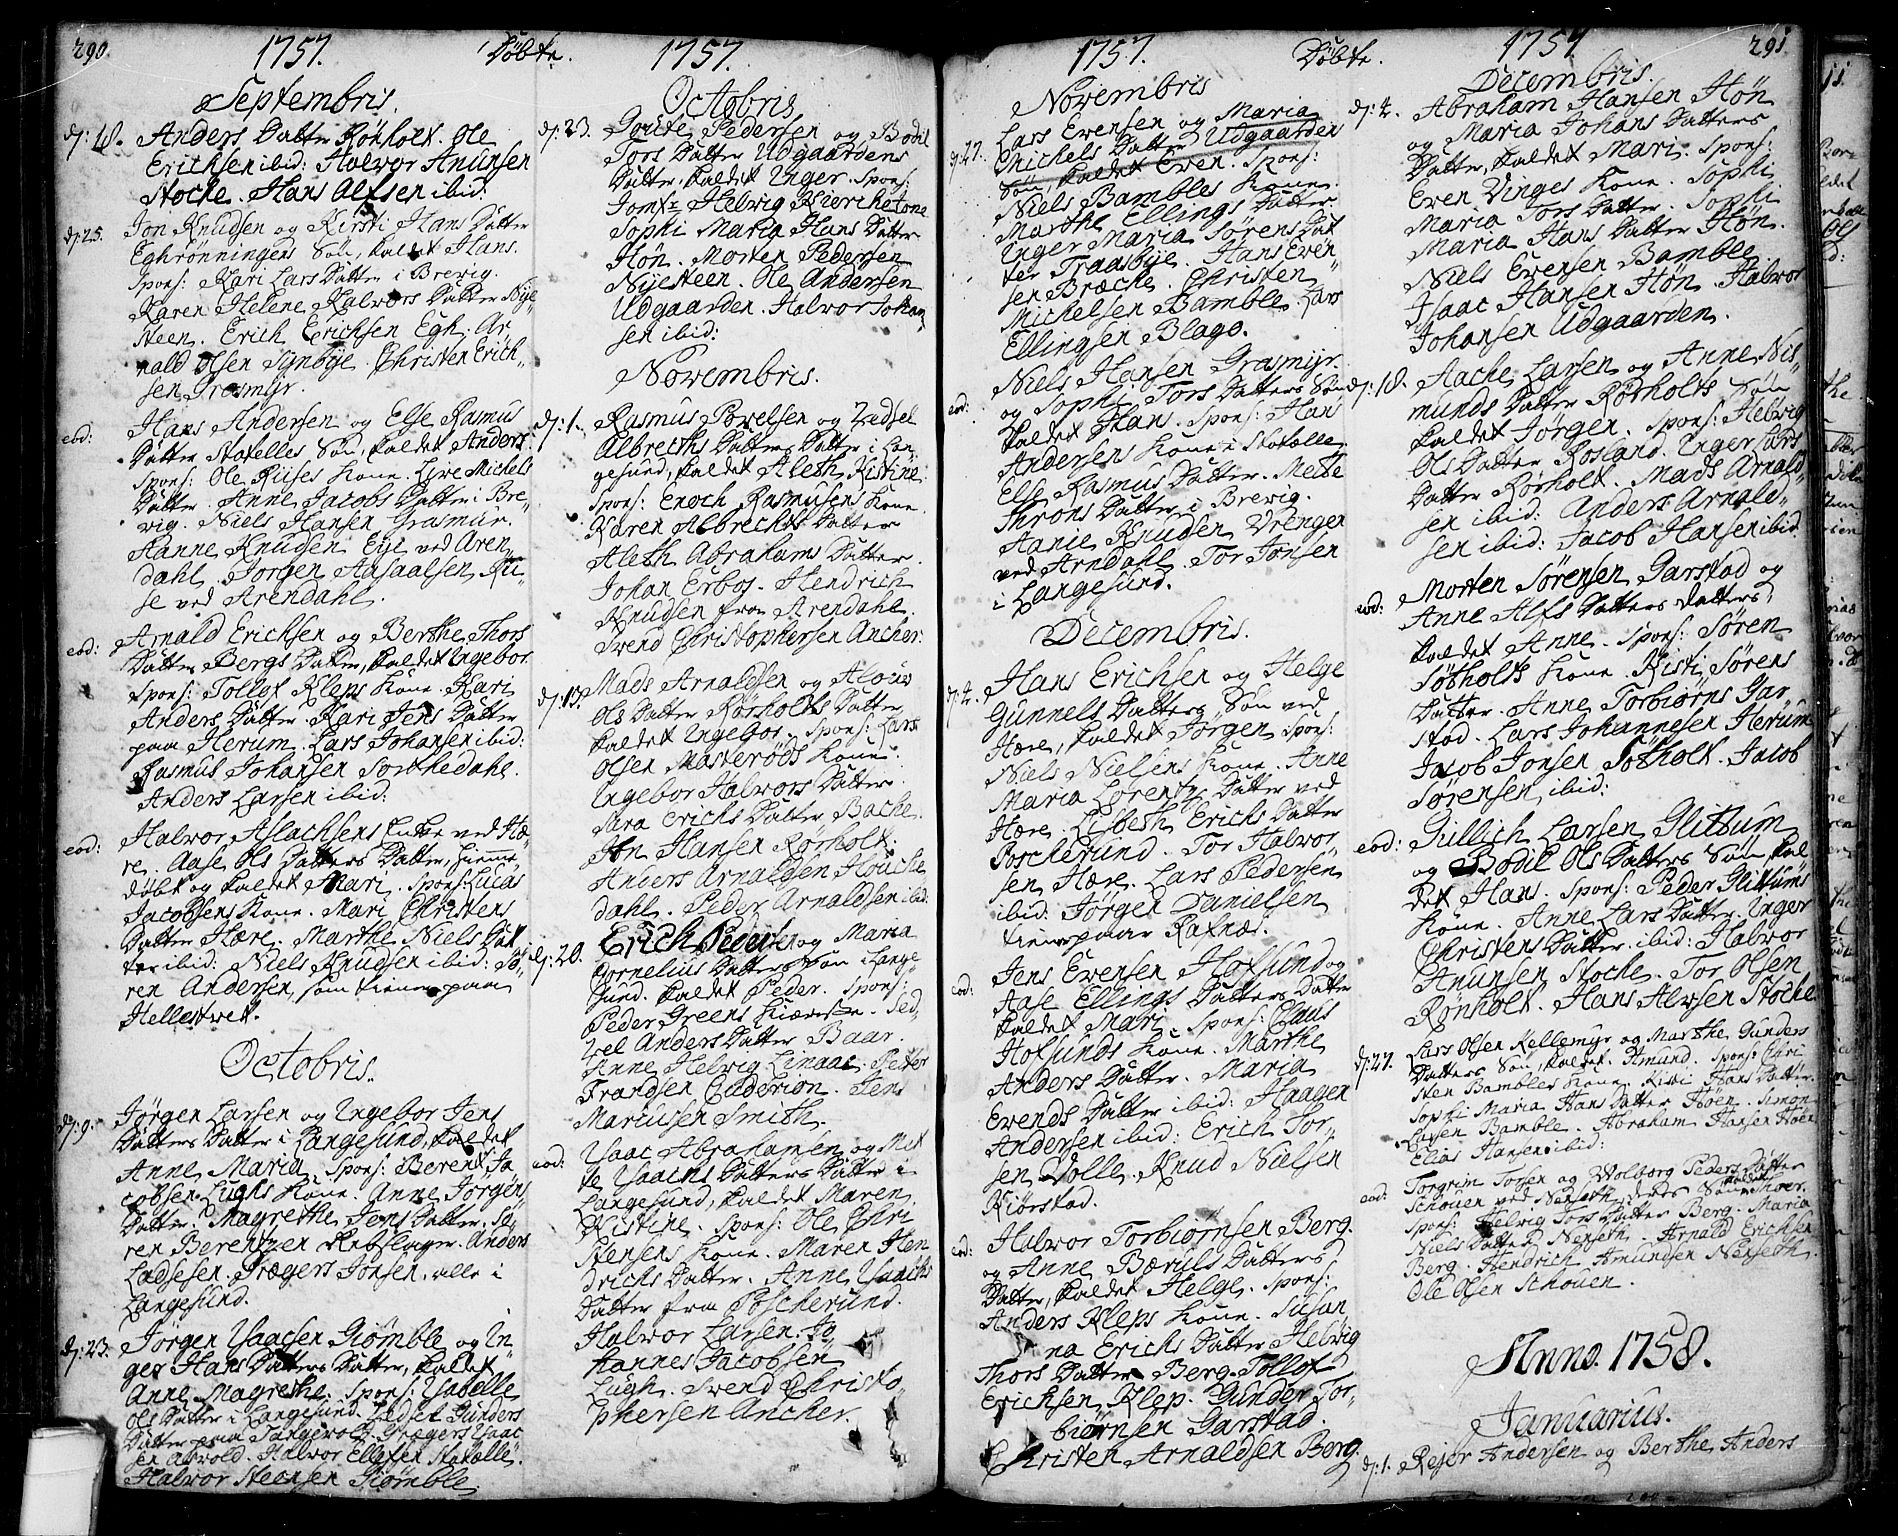 290.
1757. Döbte. 1757.
Septembris.
d: 18. Anders Datter Rönholt. Ole
Erichsen ibid: Halvor Anunsen
Stocke. Hans Alfsen ibid:
d: 25. Jon Knudsen og Kirsti Hans Datter
Eghrönningens Sön, kaldet Hans.
Spons: Kari Lars Datter i Brevig.
Karen Helene Halvors Datter Nye
steen. Erich Erichsen Egh. Ar
nald Olsen Synböje. Christen Erich
sen Grasmyr.
eod: Hans Andersen og Else Rasmus
Datter Statelles Sön, kaldet Anders.
Spons: Ole Riises Kone. Live Michels
Datter. Anne Jacobs Datter i Bre
vig. Niels Hansen Grasmür.
Hanne Knudsen Eye ved Aren
dahl. Jörgen Aasaalsen Ri
se ved Arendahl.
eod: Arnald Erichsen og Berthe Thors
Datter Bergs Datter, kaldet Ingebor.
Spons: Tollof Kleps Kone. Kari
Anders Datter. Kari Jens Datter
paa Herum. Lars Johansen ibid:
Rasmus Johansen Sorthedahl.
Anders Larsen ibid:
eod: Halvor Aslachsens Enke ved Hæ
re. Aase Ols Datters Datter, hieme
döbt og kaldet Mari. Spons: Lucas
Jacobsens Kone. Mari Christens
Datter Hære. Marthe Niels Dat
ter ibid: Niels Knudsen ibid: Sö
ren Andersen, som tiener paa
Hellestvet.
Octobris.
d: 9. Jörgen Larsen og Ingebor Jens
Datters Datter i Langesund, kaldet
Anne Maria. Spons: Berent Ja
cobsen Lughs Kone. Anne Jörgens
Datter. Magrethe Jens Datter. Sö
ren Berentzen Rebslager. Anders
Ladsesen. Grægers Jonsen, alle i
Langesund.
d: 23. Jörgen Isacsen Giömble og In
ger Hans Datters Datter, kaldet
Anne Magrethe. Spons: Isabelle
Ols Datter i Langesund. Zedsel Gunders
Datter paa Tangevold. Grægers Isaac
sen Abvold. Halvor Ellefsen Statelle.
Halvor Steensen Giömble.
Octobris
d: 23. Goute Pedersen og Bodil
Tors Datter Udgaardens
Datter, kaldet Inger. Spons:
Jomfr Helwig Kierche Tone
Sophi Maria Hans Datter
Hön. Morten Pedersen
Nyesteen. Ole Andersen
Udgaarden. Halvor Johan
sen ibid:
Novembris.
d: 1. Rasmus Povelsen og Zedsel
Albrechts Datters Datter i Lan
gesund, kaldet Aleth Kistine
Spons: Enoch Rasmusens Kone.
Karen Albrechts Datter
Aleth Abrahams Datter.
Johan Erboj. Hendrich
Knudsen fra Arendahl.
Svend Christophersen Ancher:
d: 13. Mads Arnaldsen og
Ols Datter Rörholts Datter
kaldet Ingebor. Spons: Lars
Olsen Masteröds Kone.
Ingebor Halvors Datter
Sara Erichs Datter Bache.
Jon Hansen Rörholt.
Anders Arnaldsen Houche
dahl. Peder Arnaldsen ibid:
d: 20. Erich Peders: og Maria
Cornelius Datters Sön i Lange
sund. kaldet Peder. Spons:
Peder Greens Kiæreste. Zed
zel Anders Datter Baar.
Anne Helwig Linaae. Petter
Frandsen Calderion. Jens
Mariusen Smith.
eod: Isaac Abrahamsen og Met
te Isaachs Datters Datter i
Langesund, kaldet Maren
Kistine. Spons: Ole Chri
stensens Kone. Maren Hen
drichs Datter. Anne Isaachs
Datter fra Poschesund.
Halvor Larsen. Jo
hannes Jacobsen
Lugh. Svend Christo
phersen Ancher.
1757. Döbte. 1757 291.
Novembris
d: 27. Lars Evensen og Maria
Michels Datter Udgaarden
Sön, kaldet Even. Spons:
Niels Bambles Kone.
Marthe Ellings Datter
Inger Maria Sörens Dat
ter Traasbye. Hans Even
sen Bræche. Christen
Michelsen Bamble. Lars
Ellingsen Blago.
eod: Niels Hansen Grasmyr
og Sophi Tors Datters Sön
kaldet Hans. Spons: Hans
Andersens Kone i Statelle
Else Rasmus Datter. Mette
Throns Datter i Brevig.
Hanie Knudsen Vrengen
ved Arndahl. Tor Jonsen
i Langesund.
Decembris.
d: 4. Hans Erichsen og Helge
Gunnels Datters Sön ved
Hære, kaldet Jörgen Spons:
Niels Nielsens Kone. Anne
Maria Lorentz Datter ved
Hære. Lisbeth Erichs Datter
Poschesund. Tor Halvor
sen Hære. Lars Pedersen
ibid: Jörgen Danielsen
tienn paa Rafnæs.
eod: Jens Evensen Hofsund og
Aase Ellings Datters Datter
kaldet Mari. Spons: Claus
Hofsunds Kone. Marthe
Anders Datter. Maria
Evends Datter ibid: Haagen
Andersen ibid: Erich Tor
sen Volle. Knud Nielsen
Kiörstad.
eod: Halvor Torbiörnsen Berg.
og Anne Bæruls Datters
Datter, kaldet Helge. Spons:
Anders Kleps Kone. Susan
na Erichs Datter Helvig
Thors Datter Berg. Tollof
Erichsen Klep. Gunder Tor
biörnsen Garstad.
Christen Arnaldsen Berg.
Decembris.
d: 4. Abraham Hansen Hön
og Maria Johans Datters
Datter, kaldet Mari. Spons:
Even Vinges Kone. Sophi
Maria Tors Datter. Sophi
Maria Hans Datter Hön.
Niels Evensen Bamble
Isaac Hansen Hön. Halvor
Johansen Udgaarden.
d: 18. Aache Larsen og Anne Nis
munds Datter Rörholts Sön
kaldet Jörgen. Spons: Helvig
Ols Datter Rosland. Inger Lars
Datter Rörholt. Mads Arnald
sen ibid: Anders Arnald
sen ibid: Jacob Hansen ibid
eod: Morten Sörensen Garstad og
Anne Alfs Datters Datter,
kaldet Anne. Spons: Sören
Sötholts Kone. Kisti Sörens
Datter. Anne Torbiörns Gar
stad. Lars Johannesen Herum
Jacob Jonsen Sötholt. Jacob
Sörensen, ibid:
eod: Gullich Larsen Glittum
og Bodil Ols Datters Sön kal
det Hans. Spons: Peder Glittums
Kone. Anne Lars Datter. Inger
Christens Datter. ibid: Halvor
Anunsen Stocke. Tor Olsen
Rönholt. Hans Alwsen Stocke
d: 27. Lars Olsen Kellemyr og Marthe Gunders
Datters Sön, kaldet Amund. Spons: Chri
sten Bambles Kone. Kisti Hans Datter
Sophi Maria Hans Datter Höen. Simon
Larsen Bamble. Abraham Hansen Höen
Elias Hansen ibid:
eod: Torgrim Tossen og Wolborg Peders Datter
Schouen ved Nenseth deres Sön kaldet Thoer.
Spons: Helvig Tors Datter Berg. Maria
Niels Datter Nenseth. Arnald Erichsen
Berg. Hendrich Amundsen Nenseth.
Ole Olsen Schouen.
Anno. 1758.
Januarius.
d: 1. Rejer Andersen og Berthe Anders